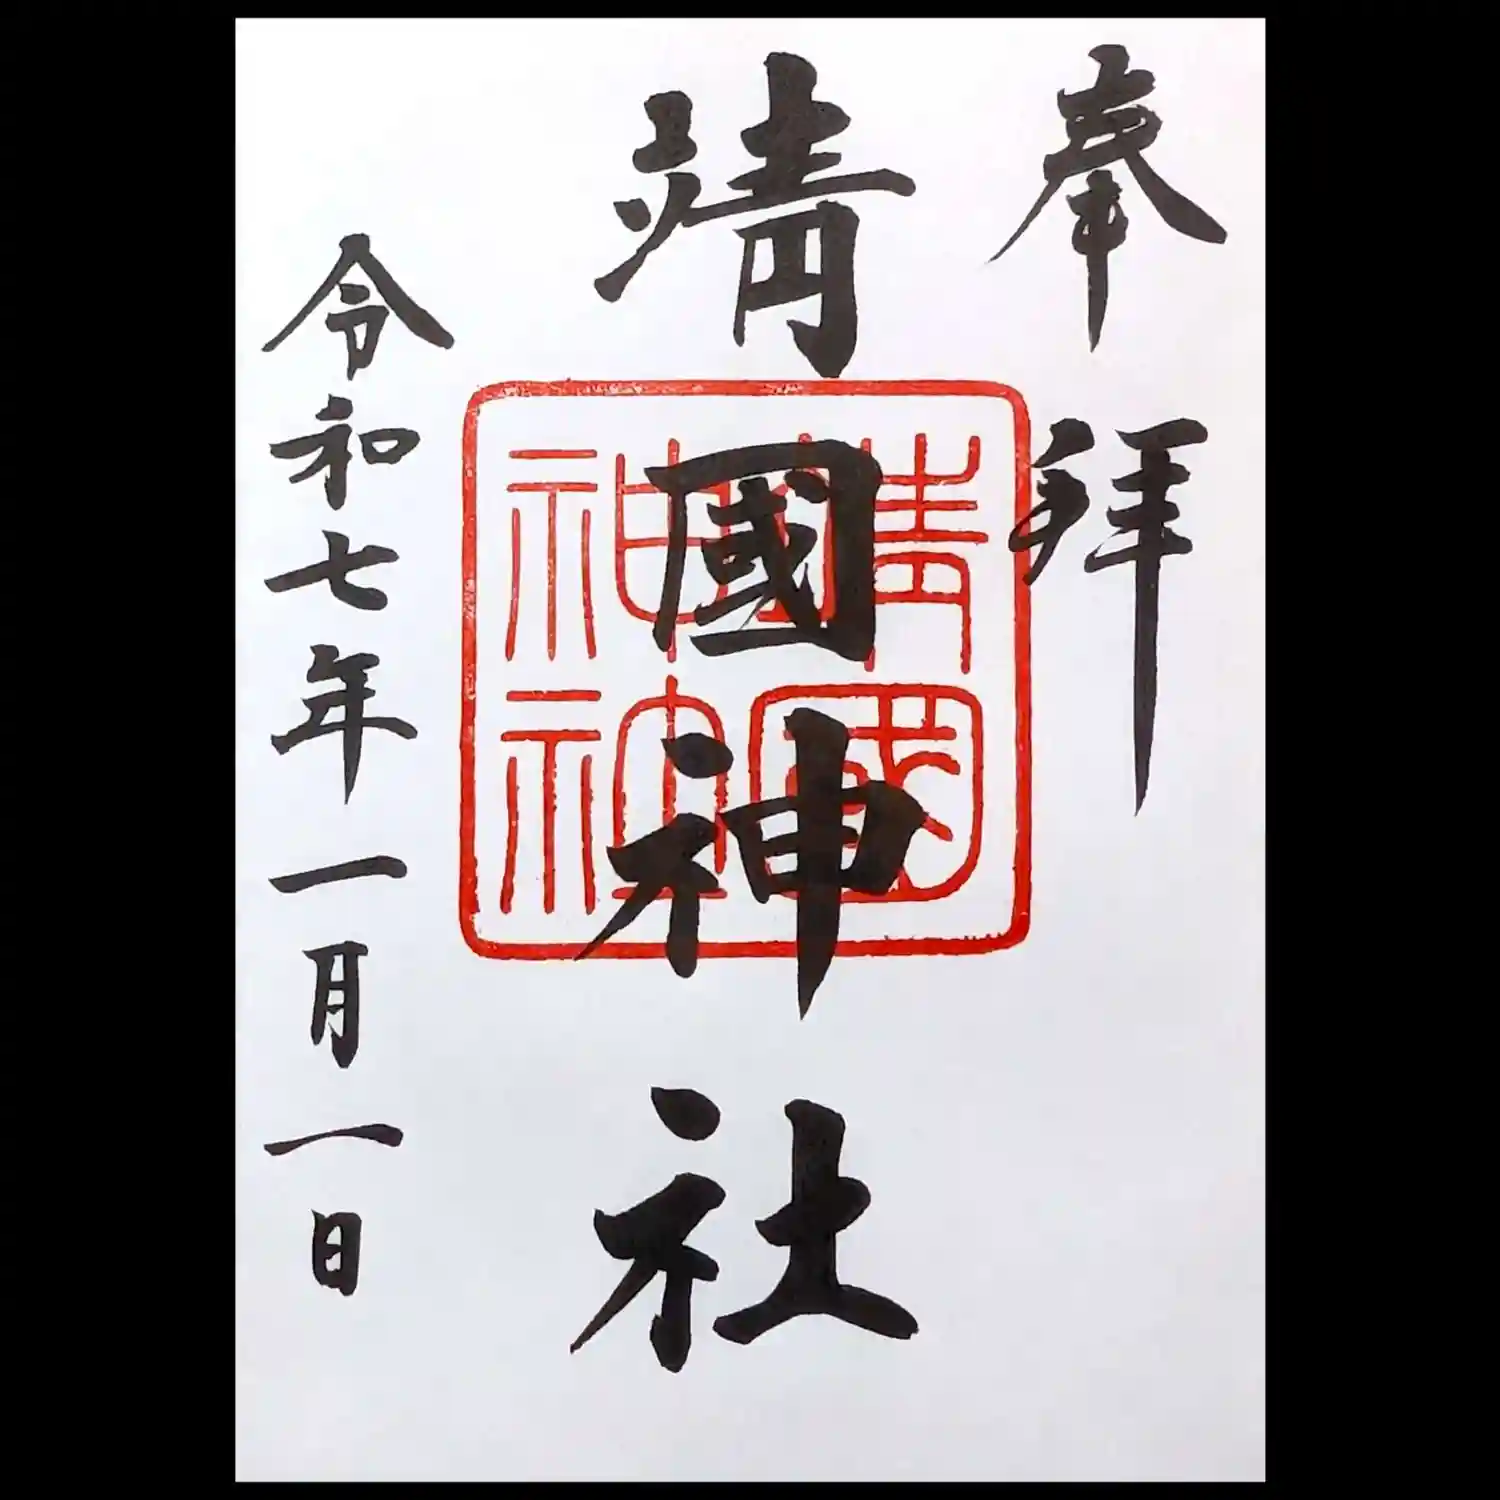 奉拜
靖國神社
靖國神社
令和七年一月一日